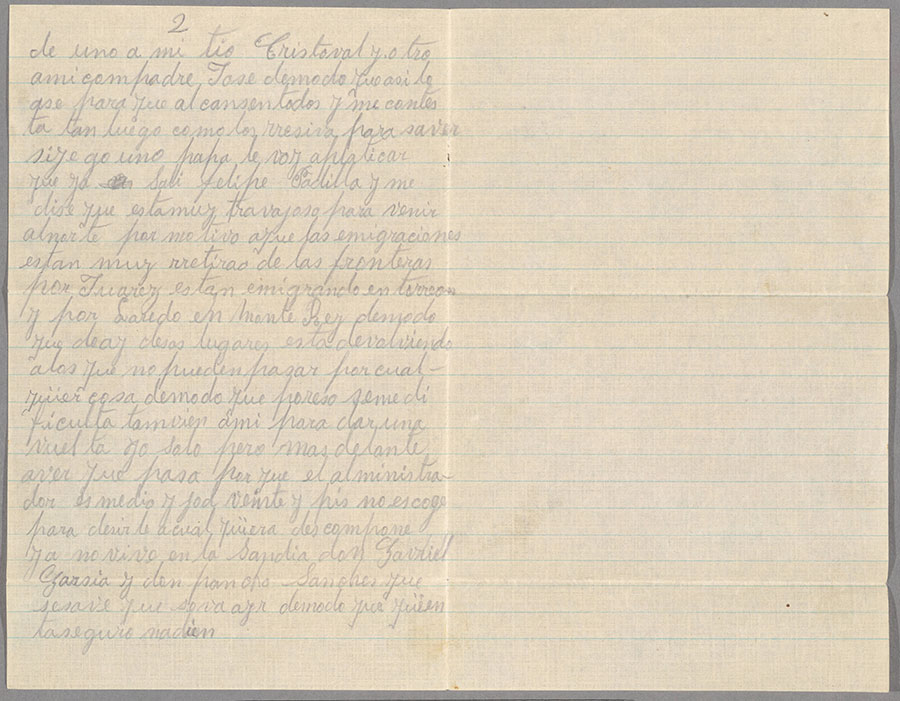 2
de uno a mi tio Cristoval y otro
ami compadre Jose demodo que asi lo
ase para que alcansentodos y me contes
ta tan luego como los rresiva para saver
si
que ya Sali felipe Padilla y me
dise que estamuy travajoso para venir
alnorte por motivo aque las emigraciones
estan muy rretirao de las fronteras
por Juarez estan emigrando en torreon
y por Laredo en Monte Rey demodo
que deay desos lugares esta devolviendo
alos que no pueden pagar por cual-
quier cosa demodo que poreso seme di
ficulta tamvien ami para dar una
vuelta yo solo pero mas delante
aver que pasa porque el alministra
dor es medio y jod veinte y pis no escoge
para desirle acual quiera descompone
ya no vivo en la Sandia don Gavriel
Garsia y don pancho Sanches que
sesave que seva air demodo que quien
taseguro nadien